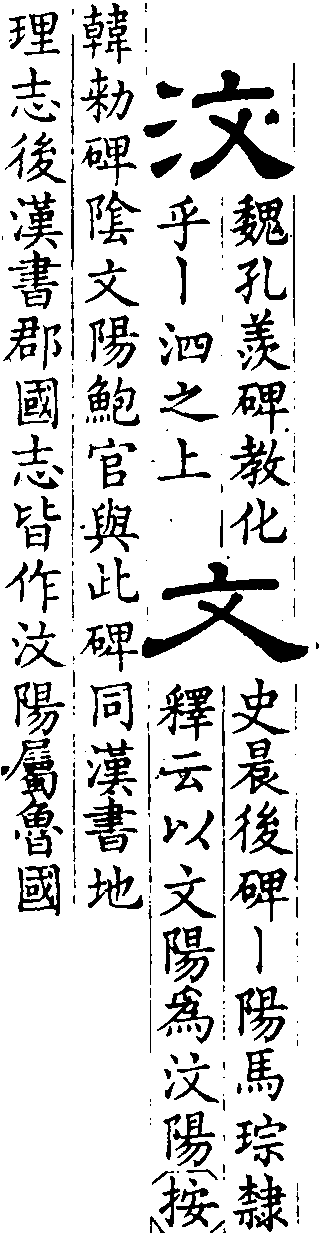 汶
魏孔羨碑教化
乎丨泗之上
文
史晨後碑丨陽馬琮隸
釋云以文陽爲汶陽〔按〕
韓勑碑陰文陽鮑官與此碑同漢書地
理志後漢書郡國志皆作汶陽屬魯國